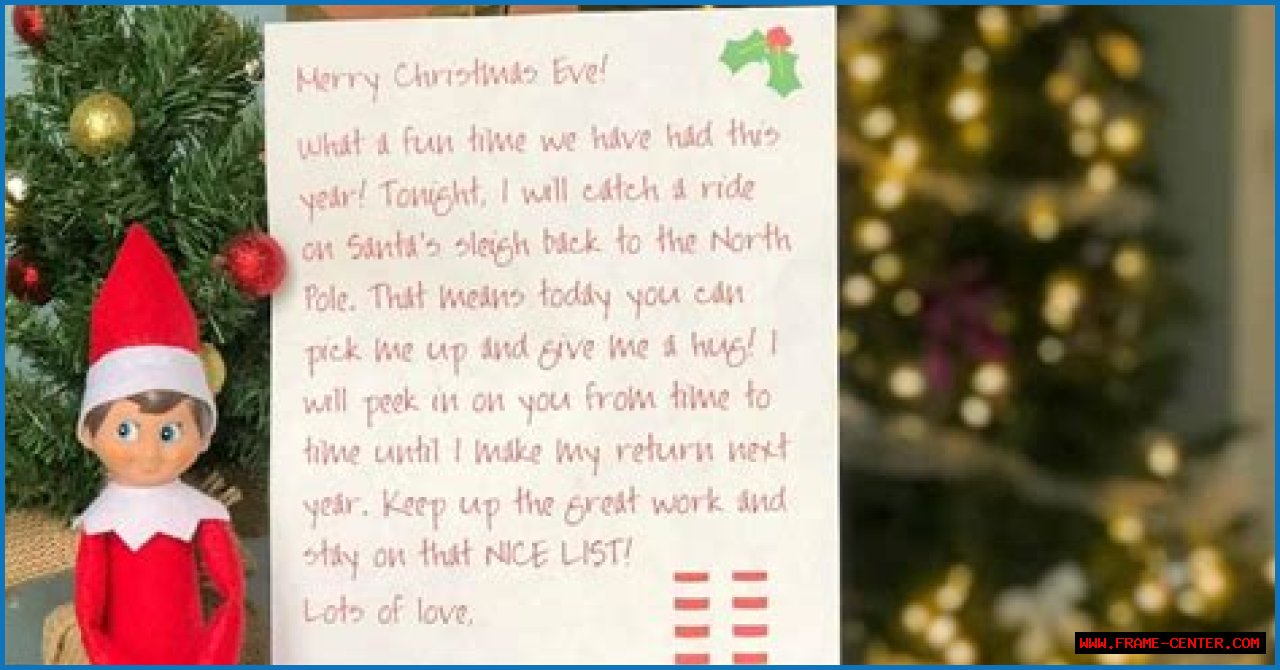 Merry Christmas Eve!
What a fun time we have had this
year! Tonight, I will catch a ride
on Santa's sleigh back to the North
Pole. That means today you can
pick me up and give me a hug! I
will peek in on you from time to
time until I make my return next
year. Keep up the great work and
stay on that NICE LIST!
Lots of love,
WWW.FRAME-CENTER.COM